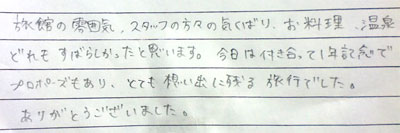 旅館の雰囲気、スタッフの方々の気くばり、お料理、温泉
どれもすばらしかったと思います。今日は付き合って1年記念で
プロポーズもあり、とても想い出に残る旅行でした。
ありがとうございました。